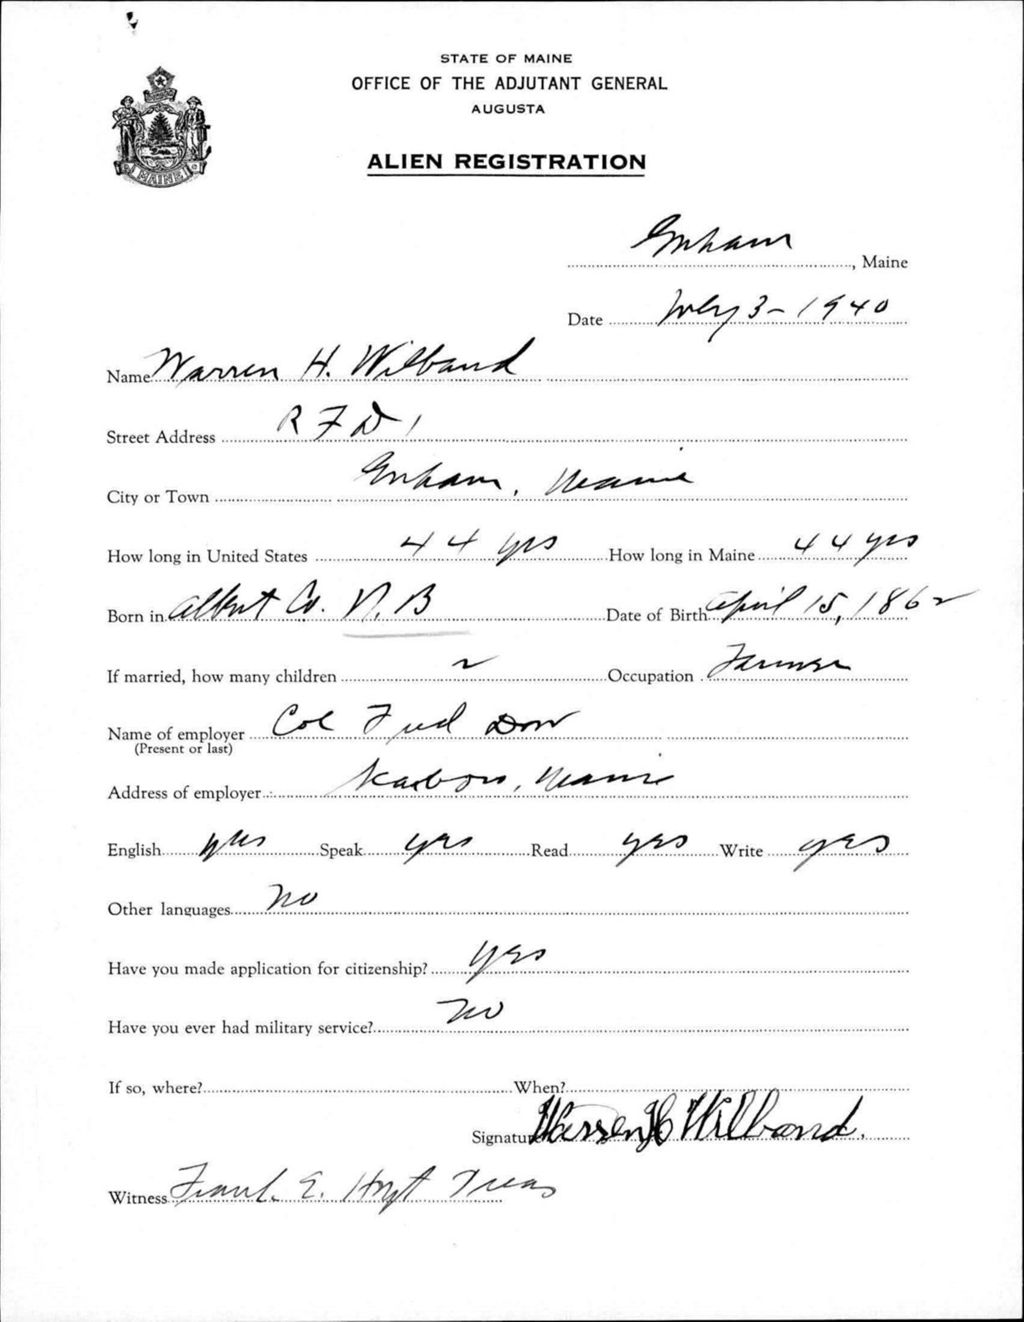 STATE OF MAINE
OFFICE OF THE ADJUTANT GENERAL
AUGUSTA
MAINE
ALIEN REGISTRATION
Gorham, Maine
Date July 3 - 1940
Name Warren H. Wilband
Street Address R F D 1
City or Town Gorham, Maine
How long in United States 44 yrs How long in Maine 44 yrs
Born in Albert Co. N. B Date of Birth April 15, 1862
If married, how many children 2 Occupation Farmer
Name of employer Col Fred Dow
(Present or last)
Address of employer Scarboro, Maine
English yes Speak yes Read yes Write yes
Other languages no
Have you made application for citizenship? yes
Have you ever had military service? no
If so, where? When?
Signature Warren H Wilband.
Witness Frank E. Hoyt Treas